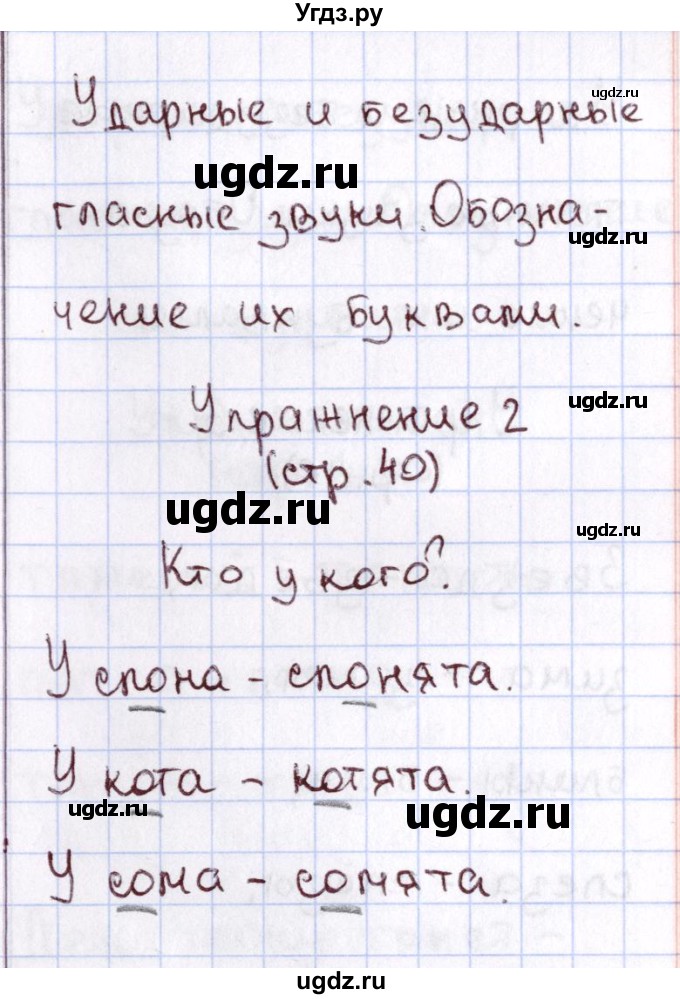 Угдз.ру
Ударные и безударные
ugdz.ru
гласные звуки. Обозна-
ugdz.ru
чение их буквами.
Упражнение 2
ugdz.ru
(стр. 40)
ugdz.ru
ugdz.ru
Кто у кого?
У слона - слонята.
У кота - котята.
ugdz.ru
ugdz.ru
У сома - сомята.
ugdz.ru